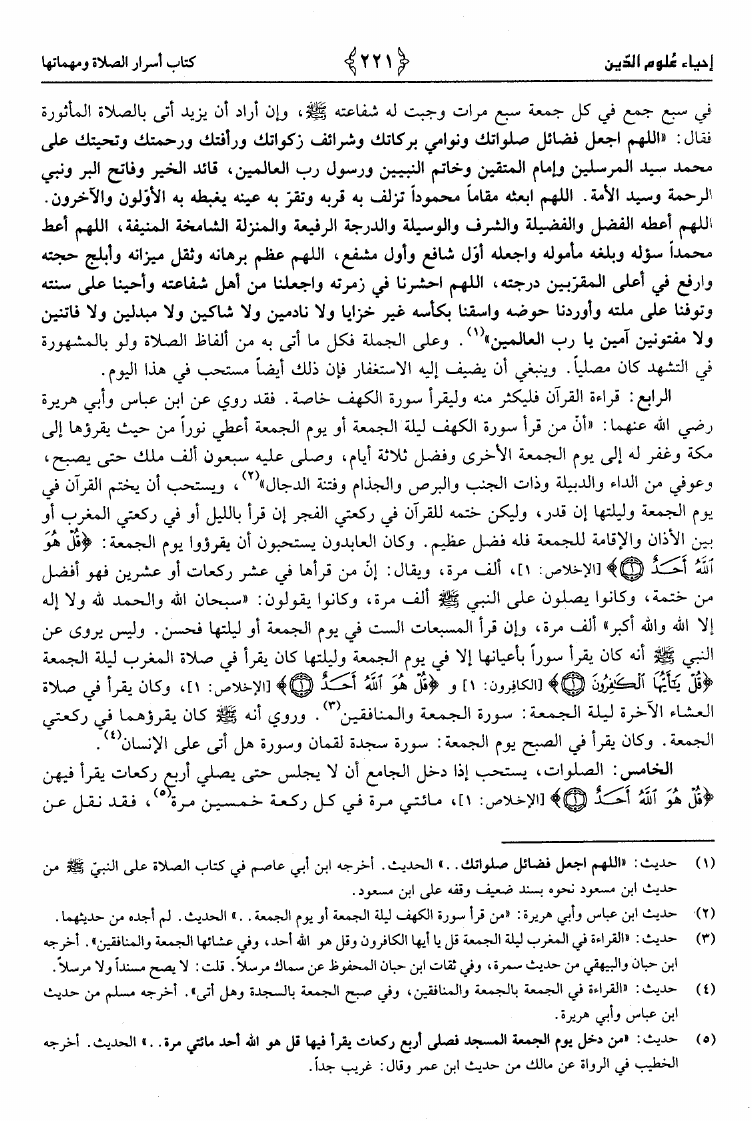 إحياء عُلوم الدّين ﴿٢٢١﴾ كتاب أسرار الصلاة ومهماتها
في سبع جمع في كل جمعة سبع مرات وجبت له شفاعته ﷺ، وإن أراد أن يزيد أتى بالصلاة المأثورة
فقال: «اللهم اجعل فضائل صلواتك ونوامي بركاتك وشرائف زكواتك ورأفتك ورحمتك وتحيتك على
محمد سيد المرسلين وإمام المتقين وخاتم النبيين ورسول رب العالمين، قائد الخير وفاتح البر ونبي
الرحمة وسيد الأمة. اللهم ابعثه مقاماً محموداً تزلف به قربه وتقرّ به عينه يغبطه به الأوّلون والآخرون.
اللهم أعطه الفضل والفضيلة والشرف والوسيلة والدرجة الرفيعة والمنزلة الشامخة المنيفة، اللهم أعط
محمداً سؤله وبلغه مأموله واجعله أوّل شافع وأول مشفع، اللهم عظم برهانه وثقل ميزانه وأبلج حجته
وارفع في أعلى المقرّبين درجته، اللهم احشرنا في زمرته واجعلنا من أهل شفاعته وأحينا على سنته
وتوفنا على ملته وأوردنا حوضه واسقنا بكأسه غير خزايا ولا نادمين ولا شاكين ولا مبدلين ولا فاتنين
ولا مفتونين آمين يا رب العالمين»(١). وعلى الجملة فكل ما أتى به من ألفاظ الصلاة ولو بالمشهورة
في التشهد كان مصلياً. وينبغي أن يضيف إليه الاستغفار فإن ذلك أيضاً مستحب في هذا اليوم.
الرابع: قراءة القرآن فليكثر منه وليقرأ سورة الكهف خاصة. فقد روي عن ابن عباس وأبي هريرة
رضي الله عنهما: «أنّ من قرأ سورة الكهف ليلة الجمعة أو يوم الجمعة أعطي نوراً من حيث يقرؤها إلى
مكة وغفر له إلى يوم الجمعة الأخرى وفضل ثلاثة أيام، وصلى عليه سبعون ألف ملك حتى يصبح،
وعوفي من الداء والدبيلة وذات الجنب والبرص والجذام وفتنة الدجال»(٢)، ويستحب أن يختم القرآن في
يوم الجمعة وليلتها إن قدر، وليكن ختمه للقرآن في ركعتي الفجر إن قرأ بالليل أو في ركعتي المغرب أو
بين الأذان والإقامة للجمعة فله فضل عظيم. وكان العابدون يستحبون أن يقرؤوا يوم الجمعة: ﴿قُلْ هُوَ
ٱللَّهُ أَحَدٌ ۝١﴾ [الإخلاص: ١]، ألف مرة، ويقال: إنّ من قرأها في عشر ركعات أو عشرين فهو أفضل
من ختمة، وكانوا يصلون على النبي ﷺ ألف مرة، وكانوا يقولون: «سبحان الله والحمد لله ولا إله
إلا الله والله أكبر» ألف مرة، وإن قرأ المسبعات الست في يوم الجمعة أو ليلتها فحسن. وليس يروى عن
النبي ﷺ أنه كان يقرأ سوراً بأعيانها إلا في يوم الجمعة وليلتها كان يقرأ في صلاة المغرب ليلة الجمعة
﴿قُلْ يَٰٓأَيُّهَا ٱلْكَٰفِرُونَ ۝١﴾ [الكافرون: ١] و ﴿قُلْ هُوَ ٱللَّهُ أَحَدٌ ۝١﴾ [الإخلاص: ١]، وكان يقرأ في صلاة
العشاء الآخرة ليلة الجمعة: سورة الجمعة والمنافقين(٣). وروي أنه ﷺ كان يقرؤهما في ركعتي
الجمعة. وكان يقرأ في الصبح يوم الجمعة: سورة سجدة لقمان وسورة هل أتى على الإنسان(٤).
الخامس: الصلوات، يستحب إذا دخل الجامع أن لا يجلس حتى يصلي أربع ركعات يقرأ فيهن
﴿قُلْ هُوَ ٱللَّهُ أَحَدٌ ۝١﴾ [الإخلاص: ١]، مائتي مرة في كل ركعة خمسين مرة(٥)، فقد نقل عن
(١) حديث: «اللهم اجعل فضائل صلواتك..» الحديث. أخرجه ابن أبي عاصم في كتاب الصلاة على النبيّ ﷺ من
حديث ابن مسعود نحوه بسند ضعيف وقفه على ابن مسعود.
(٢) حديث ابن عباس وأبي هريرة: «من قرأ سورة الكهف ليلة الجمعة أو يوم الجمعة..» الحديث. لم أجده من حديثهما.
(٣) حديث: «القراءة في المغرب ليلة الجمعة قل يا أيها الكافرون وقل هو الله أحد، وفي عشائها الجمعة والمنافقين». أخرجه
ابن حبان والبيهقي من حديث سمرة، وفي ثقات ابن حبان المحفوظ عن سماك مرسلاً. قلت: لا يصح مسنداً ولا مرسلاً.
(٤) حديث: «القراءة في الجمعة بالجمعة والمنافقين، وفي صبح الجمعة بالسجدة وهل أتى». أخرجه مسلم من حديث
ابن عباس وأبي هريرة.
(٥) حديث: «من دخل يوم الجمعة المسجد فصلى أربع ركعات يقرأ فيها قل هو الله أحد مائتي مرة..» الحديث. أخرجه
الخطيب في الرواة عن مالك من حديث ابن عمر وقال: غريب جداً.